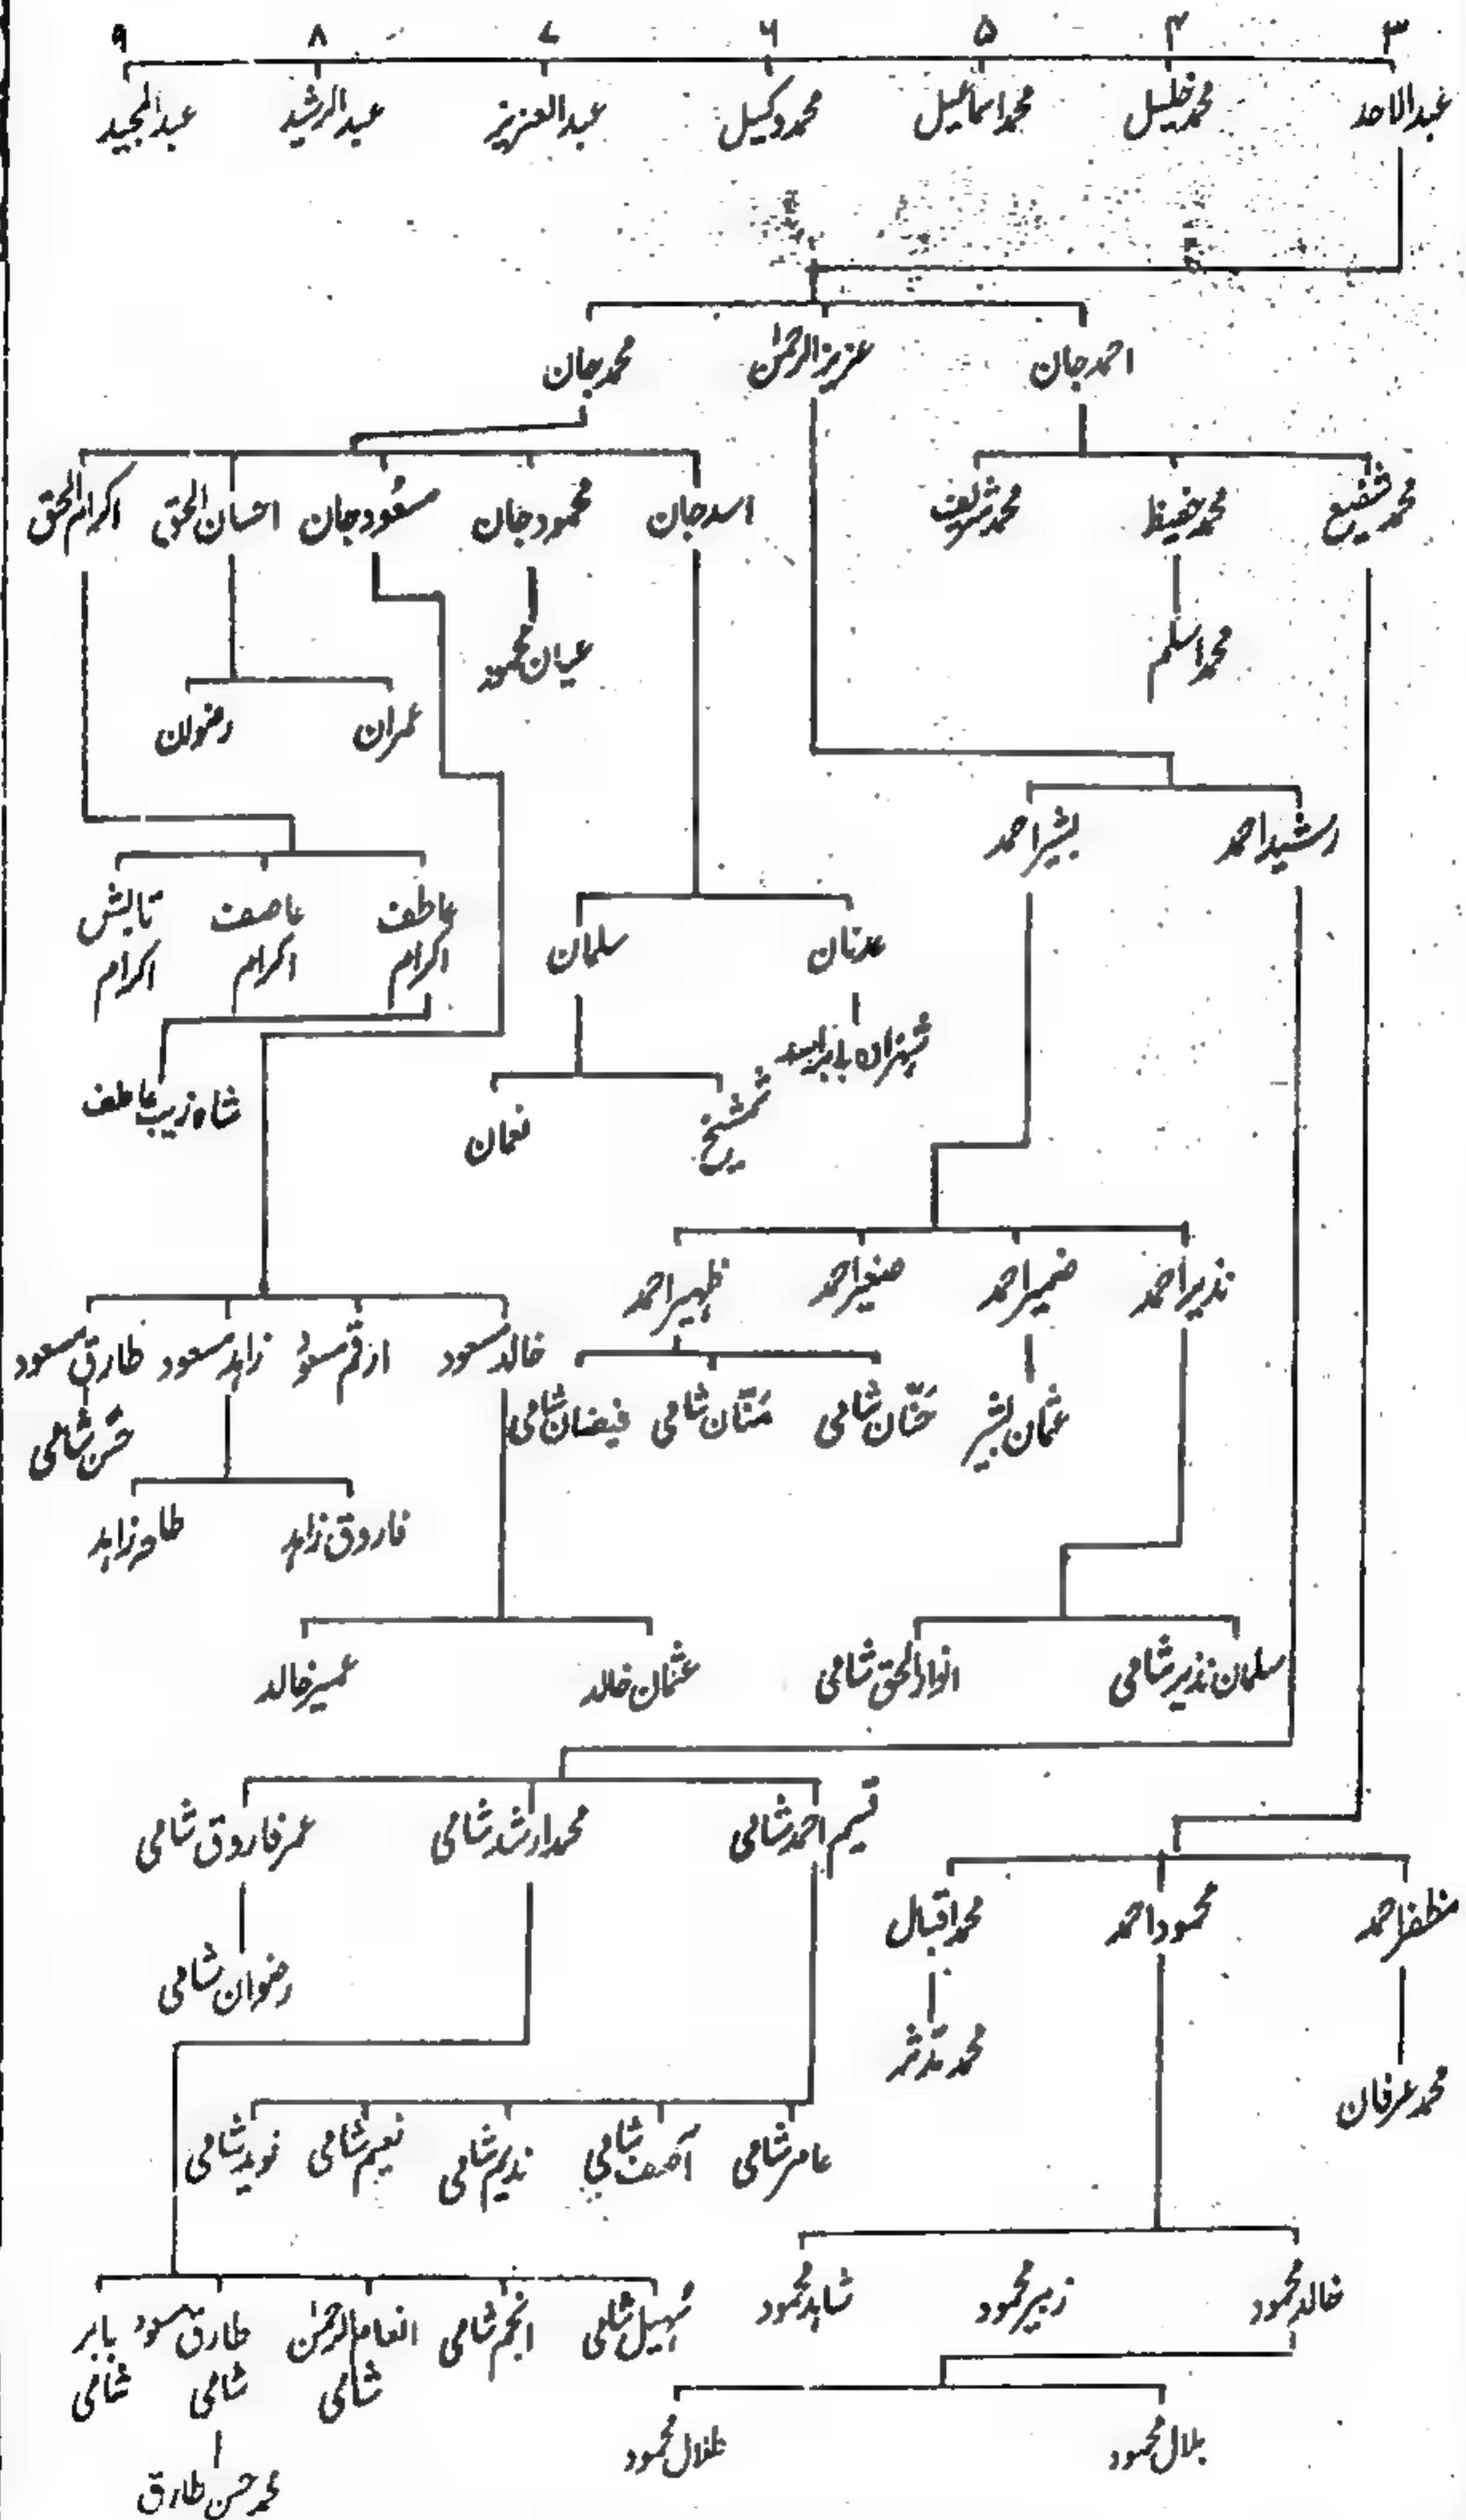 ۳ ۴ ۵ ۶ ۷ ۸ ۹
عبدالاحد محمد خلیل محمد اسماعیل محمد وکیل عبدالعزیز عبدالرشید عبدالمجید
احمد جان عزیز الرحمٰن محمد جان
محمد شفیع محمد حفیظ محمد شریف اسد جان محمود جان مسعود جان احسان الحق اکرام الحق
محمد اسلم عیان محمود
عمران رضوان
رشید احمد بشیر احمد
عاطف اکرام عاصف اکرام تابش اکرام
عدنان سلمان
شاہ زیب عاطف
نعمان
نذیر احمد ضمیر احمد صغیر احمد ظہیر احمد
خالد مسعود ارقم مسعود زاہد مسعود طارق مسعود
عثمان بشیر حنّان شامی منّان شامی فیضان شامی حسن شامی
فاروق زاہد طاہر زاہد
سلمان نذیر شامی انوار الحق شامی عثمان خالد عمیر خالد
قسیم احمد شامی محمد ارشد شامی عمر فاروق شامی
مظفر احمد محمود احمد محمد اقبال
رضوان شامی
محمد مدثر
محمد عرفان
عامر شامی آصف شامی ندیم شامی نعیم شامی نوید شامی
خالد محمود زبیر محمود شاہد محمود
سہیل شامی انجم شامی انعام الرحمٰن شامی طارق مسعود شامی بابر شامی
بلال محمود طلال محمود
محمد حسن طارق